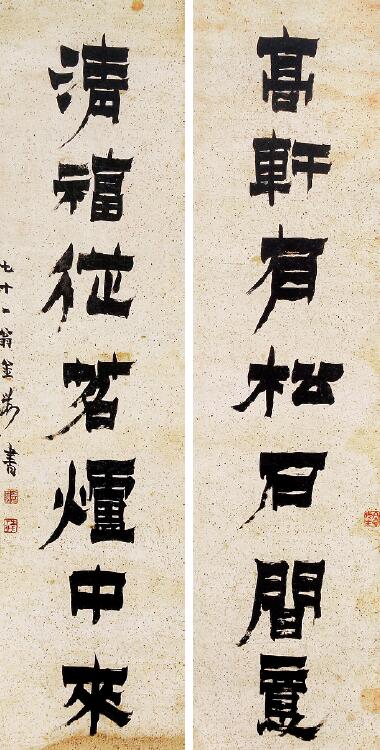 髙軒有松石間意
清福從茗爐中來
七十一翁金農書